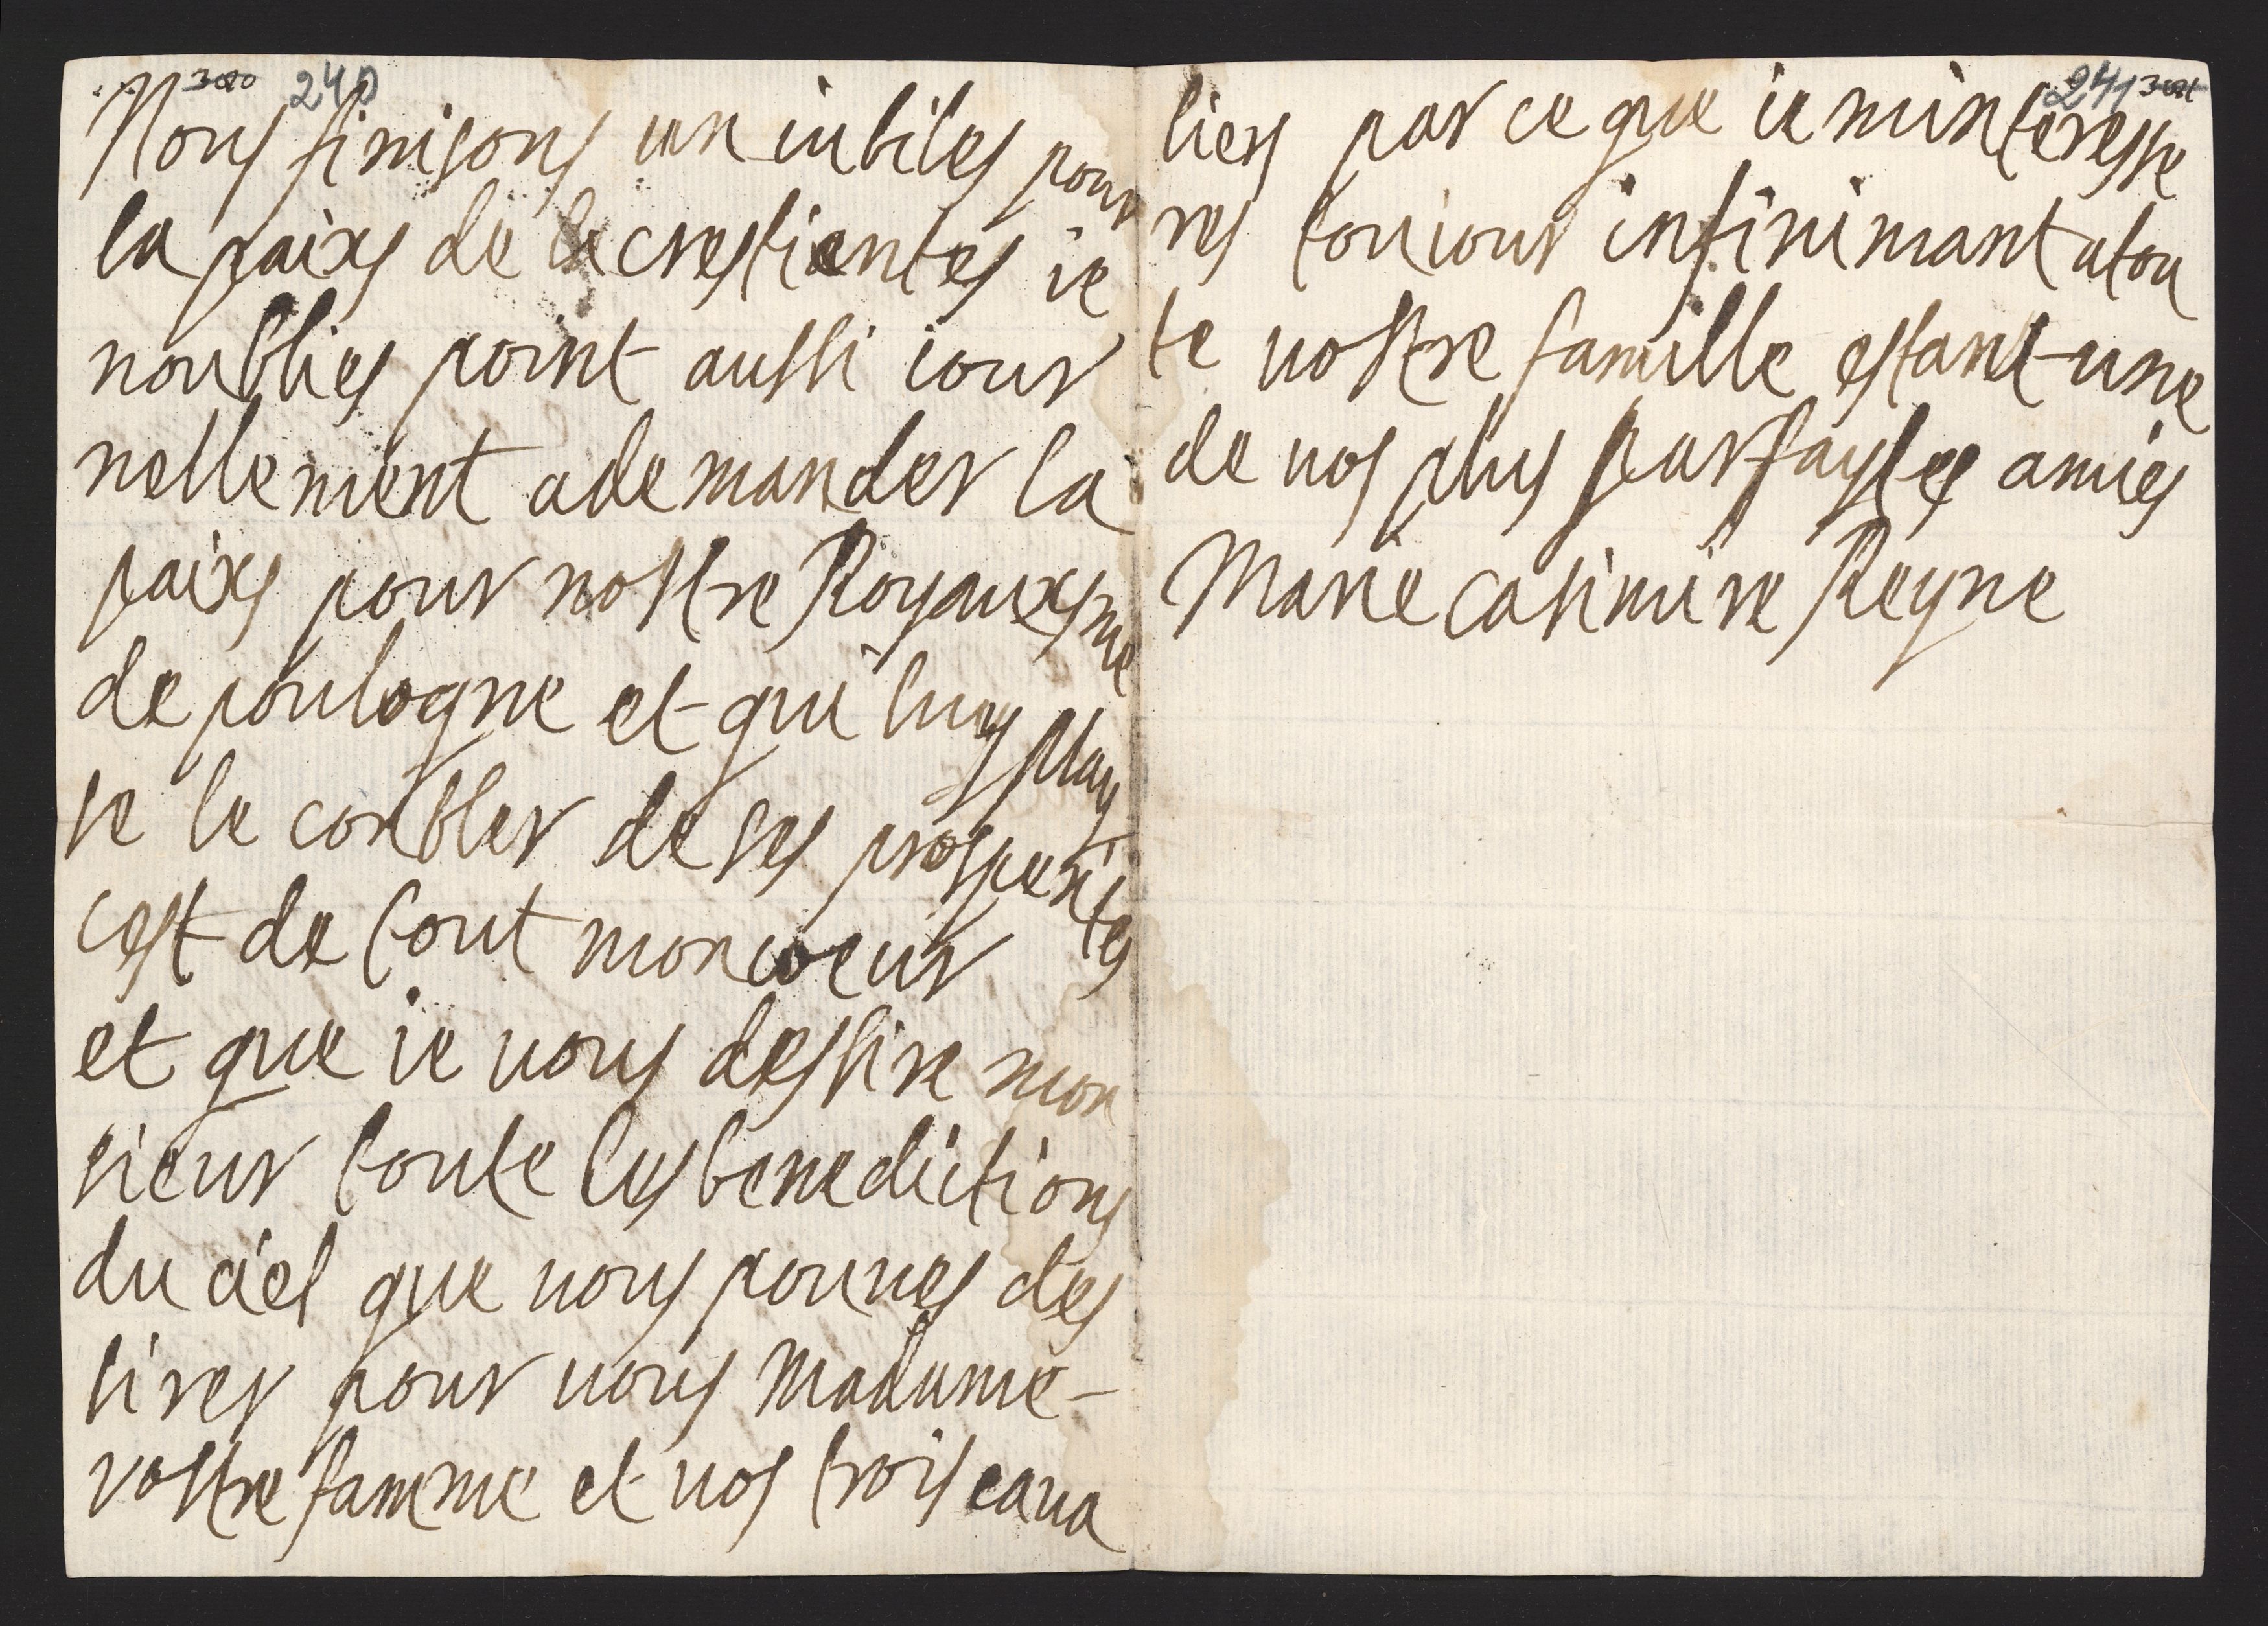 300 240
Nous finisons un iubiles pour
la paixs de la crestientes ie
noublies point aussi iour
nellement a demander la
paixs pour nostre Royauxsme
de poulogne et qui luy play
se le conbler de ses prosperites
cest de tout mon coeur
et que ie vous dessire mon
sieur toute les benedictions
du ciel que vous pouves des
sirer pour vous Madame
vostre famme et vos trois cava
241 301
liers par ce que ie minteresse
res touiour infinimant a tou
te vostre famille estant une
de vos plus parfaystes amies
Marie Casimire Reyne